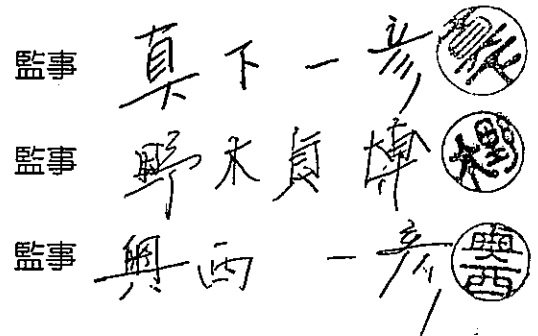 監事 真下一彦
監事 野木貞
監事 奥西一彦 奥西